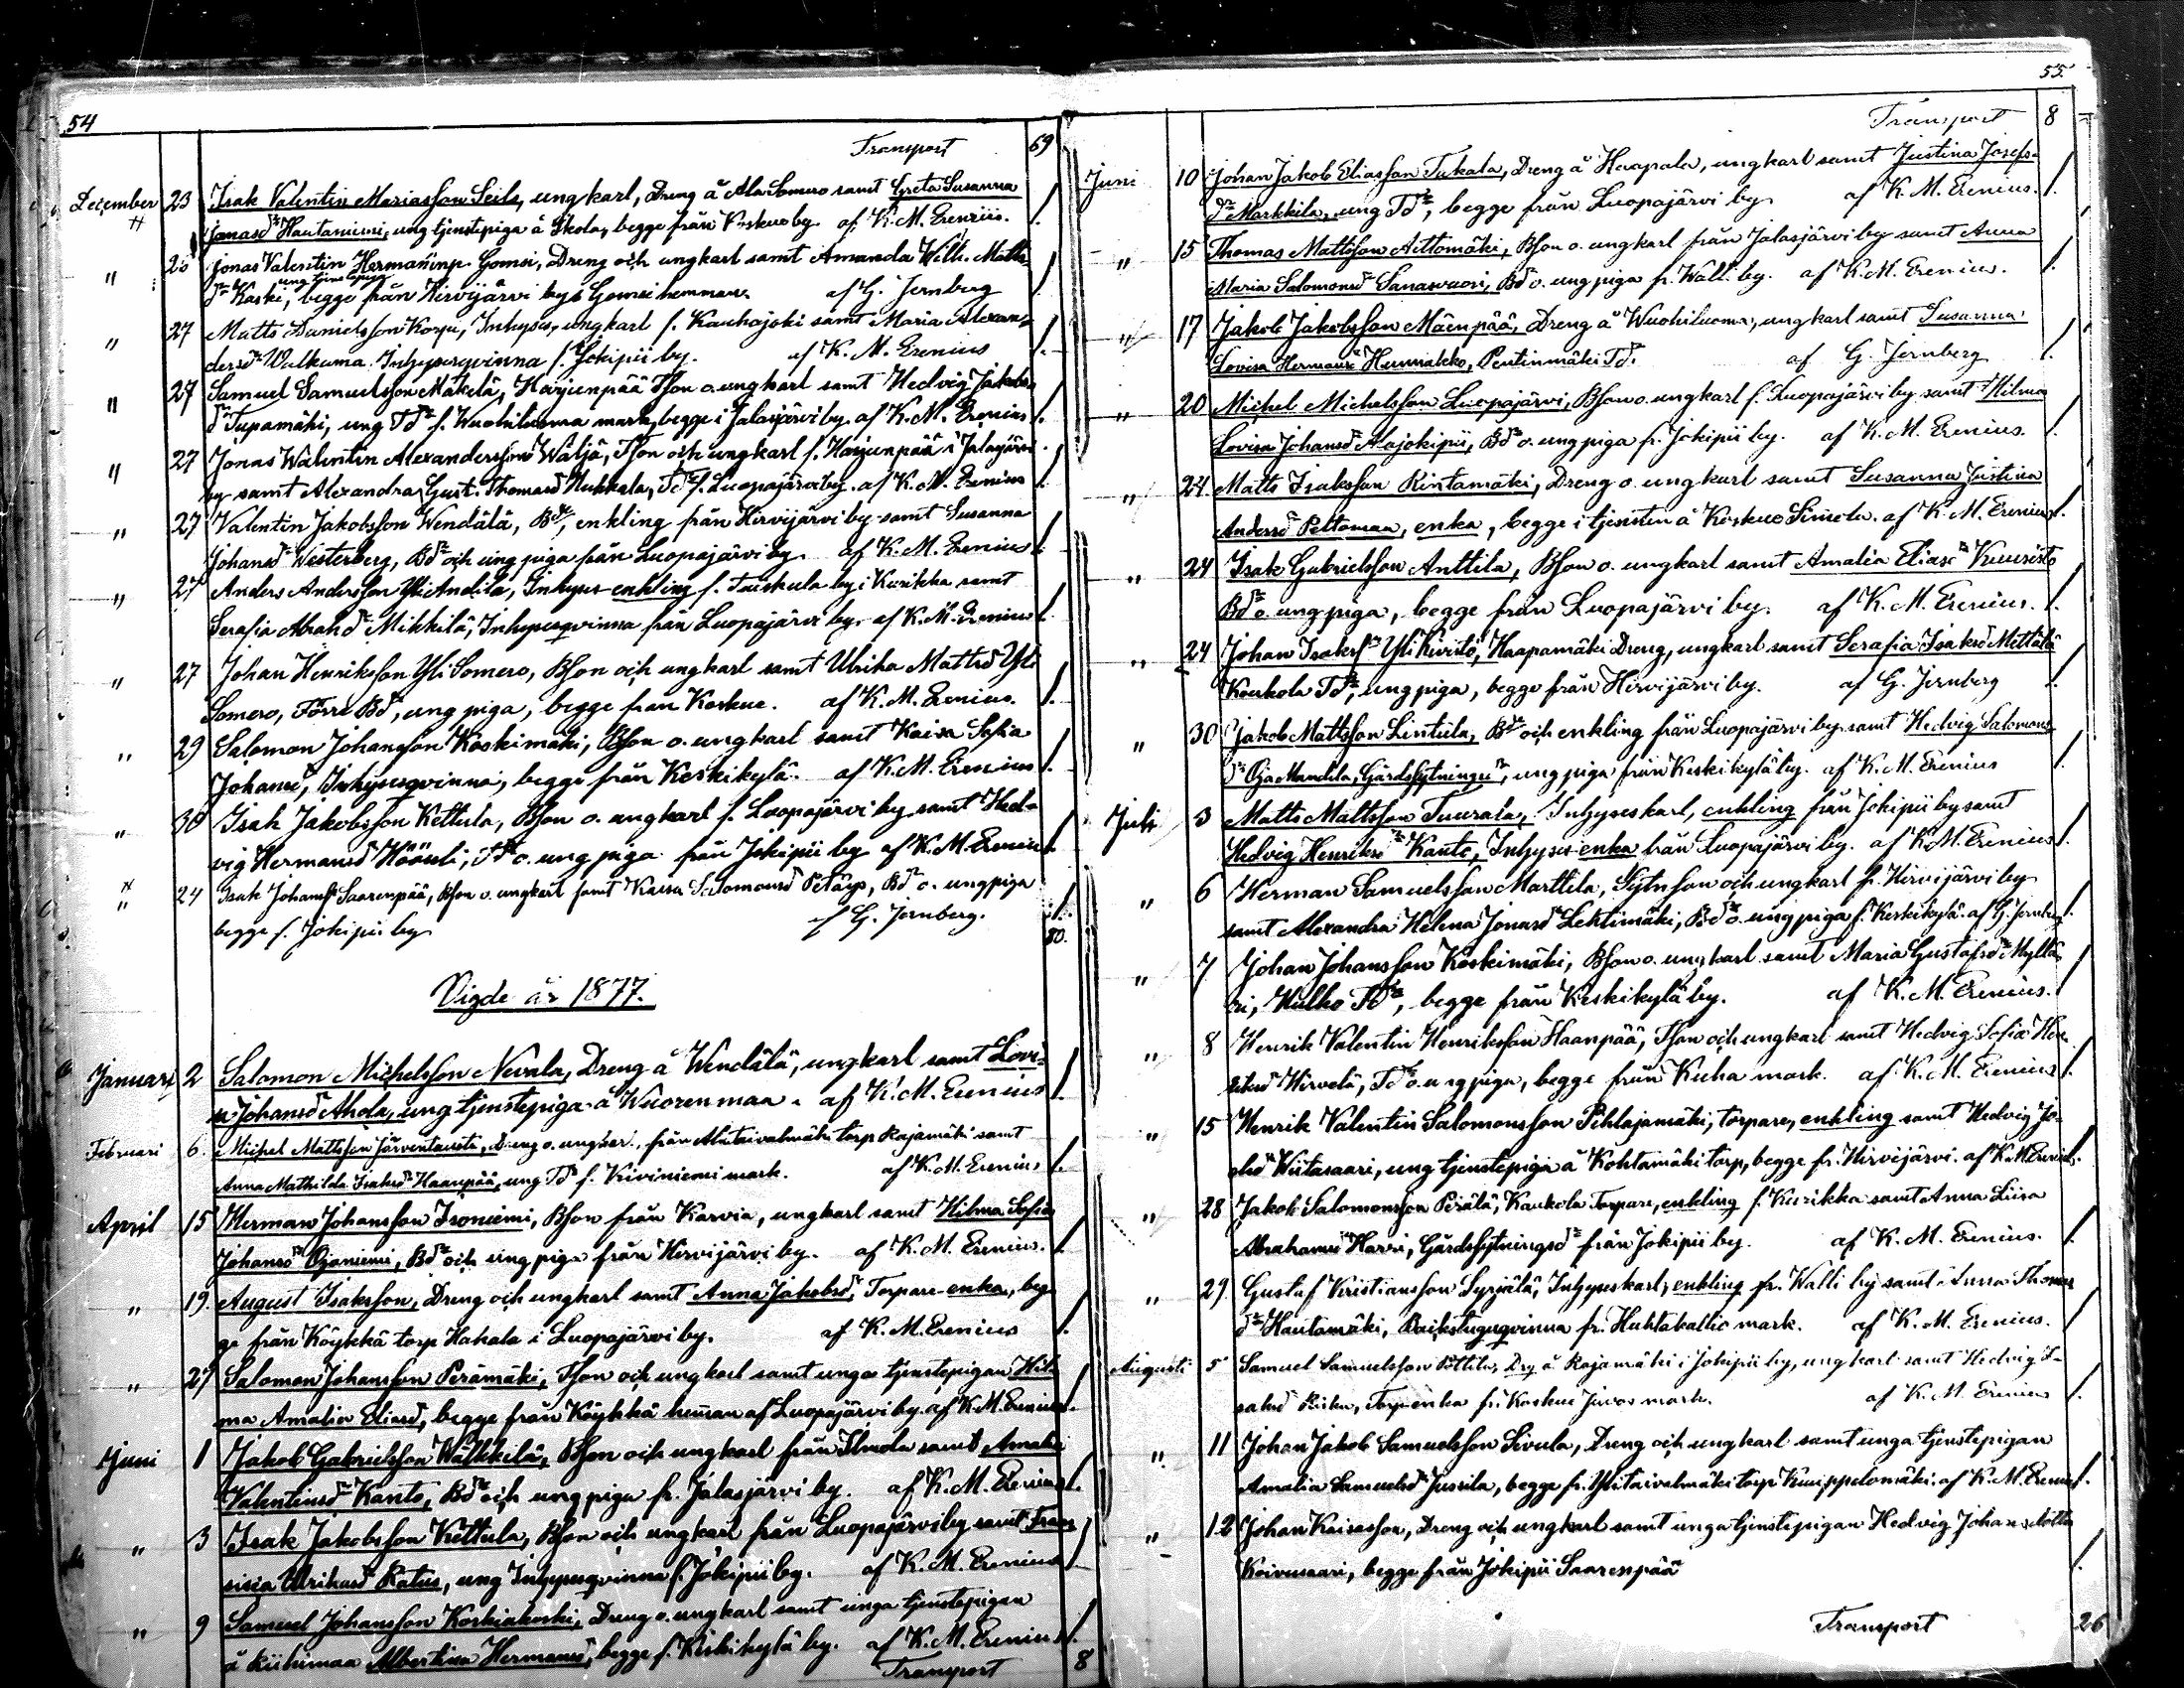 54
Transport 69
December 23 Isak Valentin Mariasson Seils, ungkarl, Dreng å AlaSomero samt Greta Susanna
Jonasdr Hautaniemi, ung tjenstepiga å Skola, begge från Koskue by. af K. M. Erenius. 1.
" Jonas Valentin Hermaninp. Gomsi, Dreng och ungkarl samt Amanda Wilh. Matts-
dr Kaski, ung tjenstepiga begge från Hirvijärvi by & Gomsi hemman. af G. Jernberg 1.
" 27 Matts Danielsson Korpi, Inhyses, ungkarl f. Kauhajoki samt Maria Alexan-
dersdr Walkama Inhysesqvinna f. Jokipii by. af K. M. Erenius 1.
" 27 Samuel Samuelsson Mäkelä, Harjunpää Tson o. ungkarl samt Hedvig Jakobs-
dr Tupamäki, ung Tdr f. Wuohiluoma mark, begge i Jalasjärvi by. af K. M. Erenius 1.
" 27 Jonas Walentin Alexandersson Wäljä, Tson och ungkarl f. Harjunpää i Jalasjärvi
by samt Alexandra Gust. Thomasdr Hukkala, Tdr f. Luopajärvi by. af K. M. Erenius 1.
" 27 Valentin Jakobsson Wendälä, Bde, enkling från Hirvijärvi by samt Susanna
Johansdr Westerberg, Bdr och ung piga från Luopajärvi by. af K. M. Erenius 1.
" 27 Anders Andersson YliAndila, Inhyses enkling f. Tuiskula by i Kurikka samt
Serafia Abrahdr Mikkilä, Inhysesqvinna från Luopajärvi by. af K. M. Erenius 1.
" 27 Johan Henriksson YliSomero, Bson och ungkarl samt Ulrika Mattsdr Yli
Somero, Förre Bdr, ung piga, begge från Koskue. af K. M. Erenius. 1.
" 29 Salomon Johansson Koskimäki, Bson o. ungkarl samt Kaisa Sofia
Johansdr, Inhysesqvinna, begge från Keskikylä. af K. M. Erenius 1.
" 30 Isak Jakobsson Kettula, Bson o. ungkarl f. Luopajärvi by samt Hed-
vig Hermansdr Köönli, Tdr o. ung piga från Jokipii by af K. M. Erenius 1.
" 24 Isak Johanss Saarenpää, Bson o. ungkarl samt Kaisa Salomonsdr Petäys, Bdr o. ung piga
begge f. Jokipii by af G. Jernberg. 1.
80.
Vigde år 1877.
Januari 2 Salomon Michelsson Nevala, Dreng å Wendälä, ungkarl samt Lovi-
sa Johansdr Ahola, ung tjenstepiga å Wuorenmaa. af K. M. Erenius 1.
Februari 6. Michel Mattsson Järventausta, Dreng o. ungkarl, från Alataivalmäki torp Rajamäki samt
Anna Mathilda Isaksdr Haanpää, ung Tdr f. Kiviniemi mark. af K. M. Erenius 1.
April 15 Herman Johansson Isoniemi, Bson från Karvia, ungkarl samt Hilma Sofia
Johansdr Ojaniemi, Bdr och ung piga från Hirvijärvi by. af K. M. Erenius. 1.
" 19. August Isaksson, Dreng och ungkarl samt Anna Jakobsdr, Torpare-enka, beg-
ge från Köykkä torp Hakala i Luopajärvi by. af K. M. Erenius 1.
" 27 Salomon Johansson Perämäki, Tson och ungkarl samt unga tjenstepigan Hil-
ma Amalia Eliasdr, begge från Köykkä heman af Luopajärvi by. af K. M. Erenius 1.
Juni 1 Jakob Gabrielsson Wälkkilä, Bson och ungkarl från Ilmola samt Amalia
Valentinsdr Kanto, Bdr och ung piga fr. Jalasjärvi by. af K. M. Erenius 1.
" 3 Isak Jakobsson Kettula, Bson och ungkarl från Luopajärvi by samt Fran-
siska Ulrikasdr Ratus, ung Inhysesqvinna f. Jokipii by. af K. M. Erenius 1.
" 9 Samuel Johansson Koskiakoski, Dreng o. ungkarl samt unga tjenstepigan
å Riihimaa Albertina Hermansdr, begge f. Keskikylä by. af K. M. Erenius 1.
Transport 8
55.
Transport 8
Juni 10 Johan Jakob Eliasson Tukala, Dreng å Haapala, ungkarl samt Justina Josefs-
dr Markkila, ung Tdr, begge från Luopajärvi by af K. M. Erenius. 1.
" 15 Thomas Mattsson Aittomäki, Bson o. ungkarl från Jalasjärvi by samt Anna
Maria Salomonsdr Sanasvuori, Bdr o. ung piga fr. Walli by. af K. M. Erenius. 1.
" 17 Jakob Jakobsson Mäenpää, Dreng å Wuohiluoma, ungkarl samt Susanna
Lovisa Hermansdr Hunnakko, Pentinmäki Tdr. af G. Jernberg 1.
" 20 Michel Michelsson Luopajärvi, Bson o. ungkarl f. Luopajärvi by samt Hilma
Lovisa Johansdr Alajokipii, Bdr o. ung piga fr. Jokipii by. af K. M. Erenius. 1.
" 24 Matts Isaksson Rintamäki, Dreng o. ungkarl samt Susanna Justina
Andersdr Peltomaa, enka, begge i tjensten å Koskue Simola. af K. M. Erenius 1.
" 24 Isak Gabrielsson Anttila, Bson o. ungkarl samt Amalia Eliasdr Kuuristo
Bdr o. ung piga, begge från Luopajärvi by. af K. M. Erenius. 1.
" 24 Johan Isakss YliKuristo, Haapamäki Dreng, ungkarl samt Serafia Isaksdr Mettälä
Koukola Tdr, ung piga, begge från Hirvijärvi by. af G. Jernberg 1.
" 30 Jakob Mattsson Lintula, Bde och enkling från Luopajärvi by samt Hedvig Salomons-
dr OjaMandila, Gårdsfytningsdr, ung piga från Keskikylä by. af K. M. Erenius 1.
Juli 3 Matts Mattsson Tuurala, Inhyseskarl, enkling från Jokipii by samt
Hedvig Henriksdr Kanto, Inhyses-enka från Luopajärvi by. af K. M. Erenius 1.
" 6 Herman Samuelsson Marttila, Sytnson och ungkarl fr. Hirvijärvi by
samt Alexandra Helena Jonasdr Lehtimäki, Bdr o. ung piga f. Keskikylä. af G. Jernberg 1.
" 7 Johan Johansson Koskimäki, Bson o. ungkarl samt Maria Gustafsdr Myllä-
ri, Hulko Tdr, begge från Keskikylä by. af K. M. Erenius. 1.
" 8 Henrik Valentin Henriksson Haanpää, Tson och ungkarl samt Hedvig Sofia Hen-
riksdr Hirvelä, Tdr o. ung piga, begge från Kuha mark. af K. M. Erenius 1.
" 15 Henrik Valentin Salomonsson Pihlajamäki, torpare, enkling samt Hedvig Jo-
elsdr Wiitasaari, ung tjenstepiga å Kohtamäki torp, begge fr. Hirvijärvi. af K. M. Erenius 1.
" 28 Jakob Salomonsson Perälä, Kaukola Torpare, enkling f. Kurikka samt Anna Liisa
Abrahamsdr Harri, Gårdsfytningsdr från Jokipii by. af K. M. Erenius. 1.
" 29. Gustaf Kristiansson Syrjälä, Inhyseskarl, enkling fr. Walli by samt Anna Thomas
dr Hautamäki, Backstuguqvinna fr. Huhtakallio mark. af K. M. Erenius. 1.
Augusti 5 Samuel Samuelsson Pöttila, Drg å Rajamäki i Jokipii by, ungkarl samt Hedvig I-
saksdr Risku, Torpenka fr. Koskue Juvas mark. af K. M. Erenius 1.
" 11 Johan Jakob Samuelsson Sivula, Dreng och ungkarl samt unga tjenstepigan
Amalia Samuelsdr Jussila, begge fr. Ylitaivalmäki torp Knuippelomäki. af K. M. Erenius 1.
" 12 Johan Kaisasson, Dreng och ungkarl samt unga tjenstepigan Hedvig Johansdotter
Koivusaari, begge från Jokipii Saarenpää 1.
Transport 26